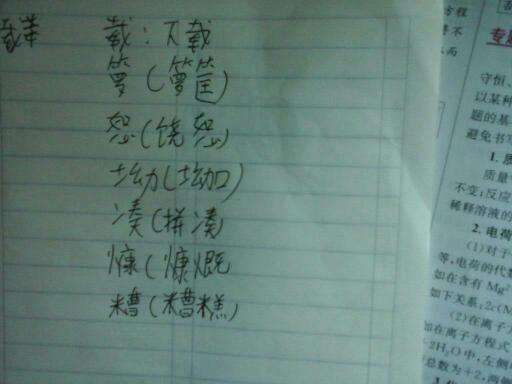 载：下载
箩（箩筐）
恕（饶恕）
坳（坳口）
凑（拼凑）
慷（慷慨
糟（糟糕）
方程
专题
守恒、
以某种
题的基
避免书写
1. 质
质量
不变；反应
稀释溶液的
2. 电荷
(1)对于
等，电荷的代数
如在含有 Mg²
如下关系：2c(M
(2)在离子方
如在离子方程式
2H₂O 中，左侧
总数为+2，两侧